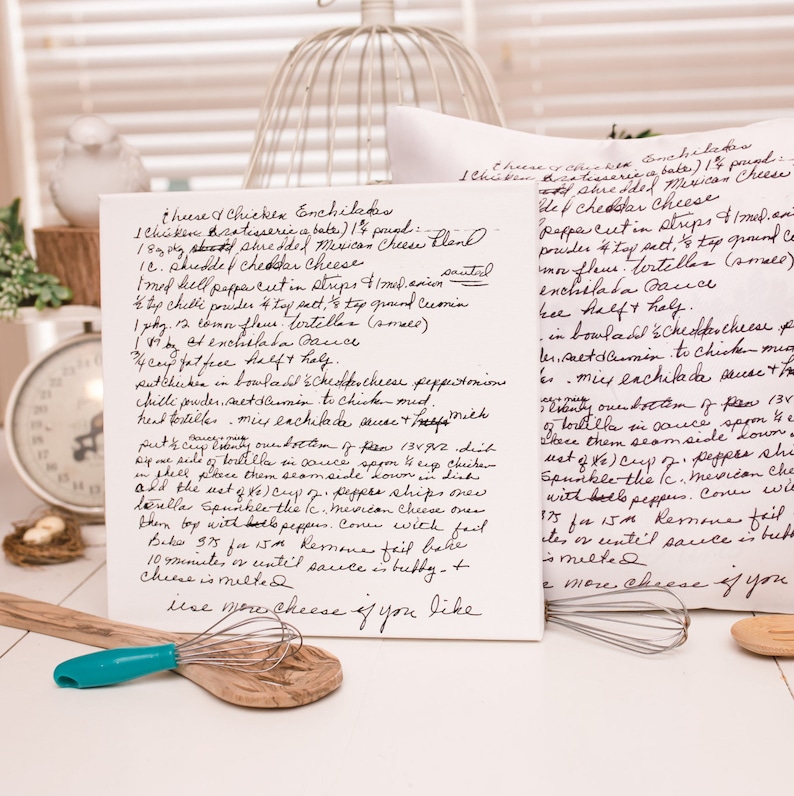 Cheese & Chicken Enchiladas
1 Chicken (rotisserie or bake) 1 3/4 pound.
1 8 oz pkg shredded Mexican Cheese Blend
1 c. shredded cheddar Cheese
1 med bell pepper cut in strips & 1 med. onion sauted
1/2 tsp chilli powder 1/4 tsp salt, 1/8 tsp ground Cumin
1 pkg. 12 corn or flour. tortillas (small)
1 enchilada sauce
3/4 cup fat free half & half.
put chicken in bowl add 1/2 cheddar cheese. pepper & onions
chilli powder, salt & cumin. to chicken mix.
heat tortillas. mix enchilada sauce & Milk
put 1/2 cup sauce & mix evenly over bottom of 13x9x2. dish
Dip one side of tortilla in sauce spoon 1/4 cup chicken
in shell place them seam side down in dish
add the rest of cup of. peppers strips over
tortillas Sprinkle the 1c. Mexican Cheese over
them top with peppers. Cover with foil
Bake 375 for 15 m Remove foil bake
10 minutes or until sauce is bubbly. &
cheese is melted
use more cheese if you like
Cheese & Chicken Enchiladas
1 Chicken (rotisserie or bake) 1 3/4 pound.
shredded Mexican Cheese
shredded cheddar Cheese
pepper cut in strips & 1 med. on
powder 1/4 tsp salt, 1/8 tsp ground Cumin
flour. tortillas (small)
enchilada sauce
free half & half.
in bowl add 1/2 cheddar cheese. p
der, salt & cumin. to chicken mix
. mix enchilada sauce &
evenly over bottom of 13x9x2
sauce spoon 1/4 c
place them seam side down in
rest of cup of. peppers stri
Sprinkle the 1c. Mexican Chees
with peppers. Cover with
375 for 15 m Remove foil ba
or until sauce is bubbly
is melted
use more cheese if you